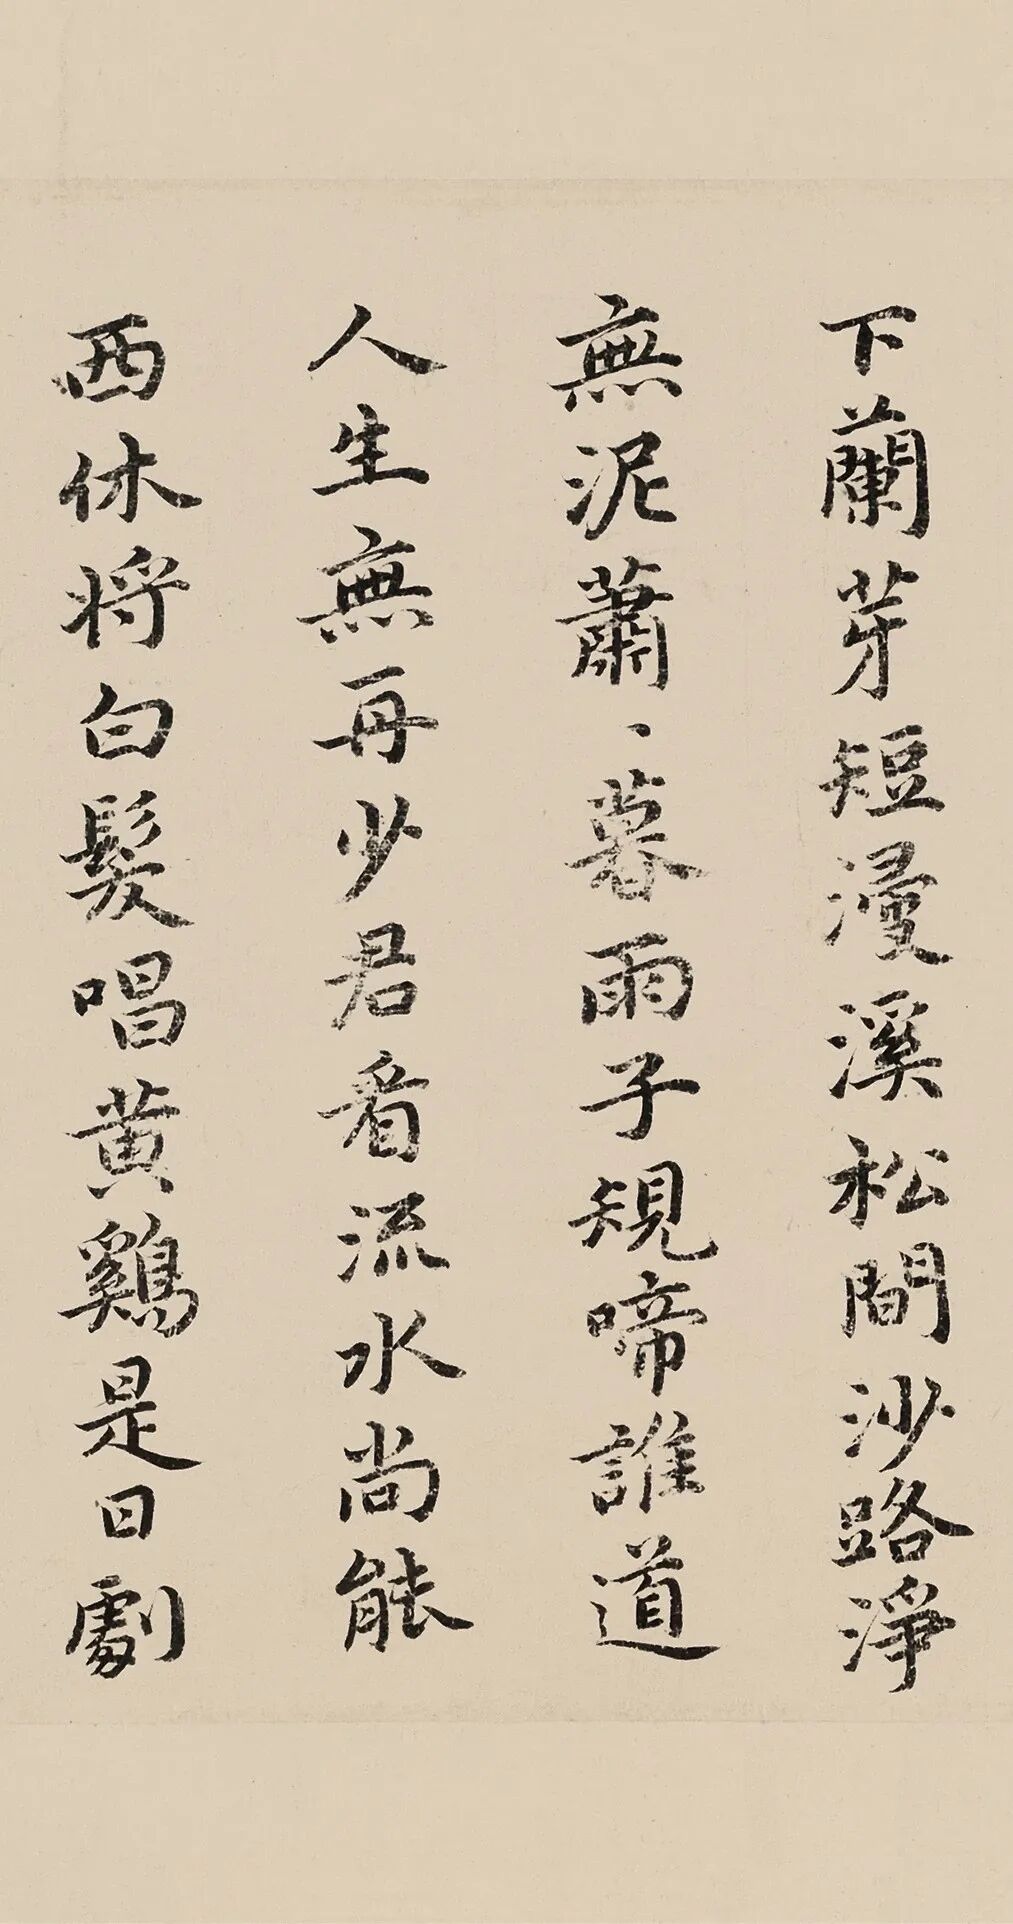 下蘭芽短漫溪松間沙路淨
無泥蕭、暮雨子規啼誰道
人生無再少君看流水尚能
西休將白髮唱黃鷄是日劇